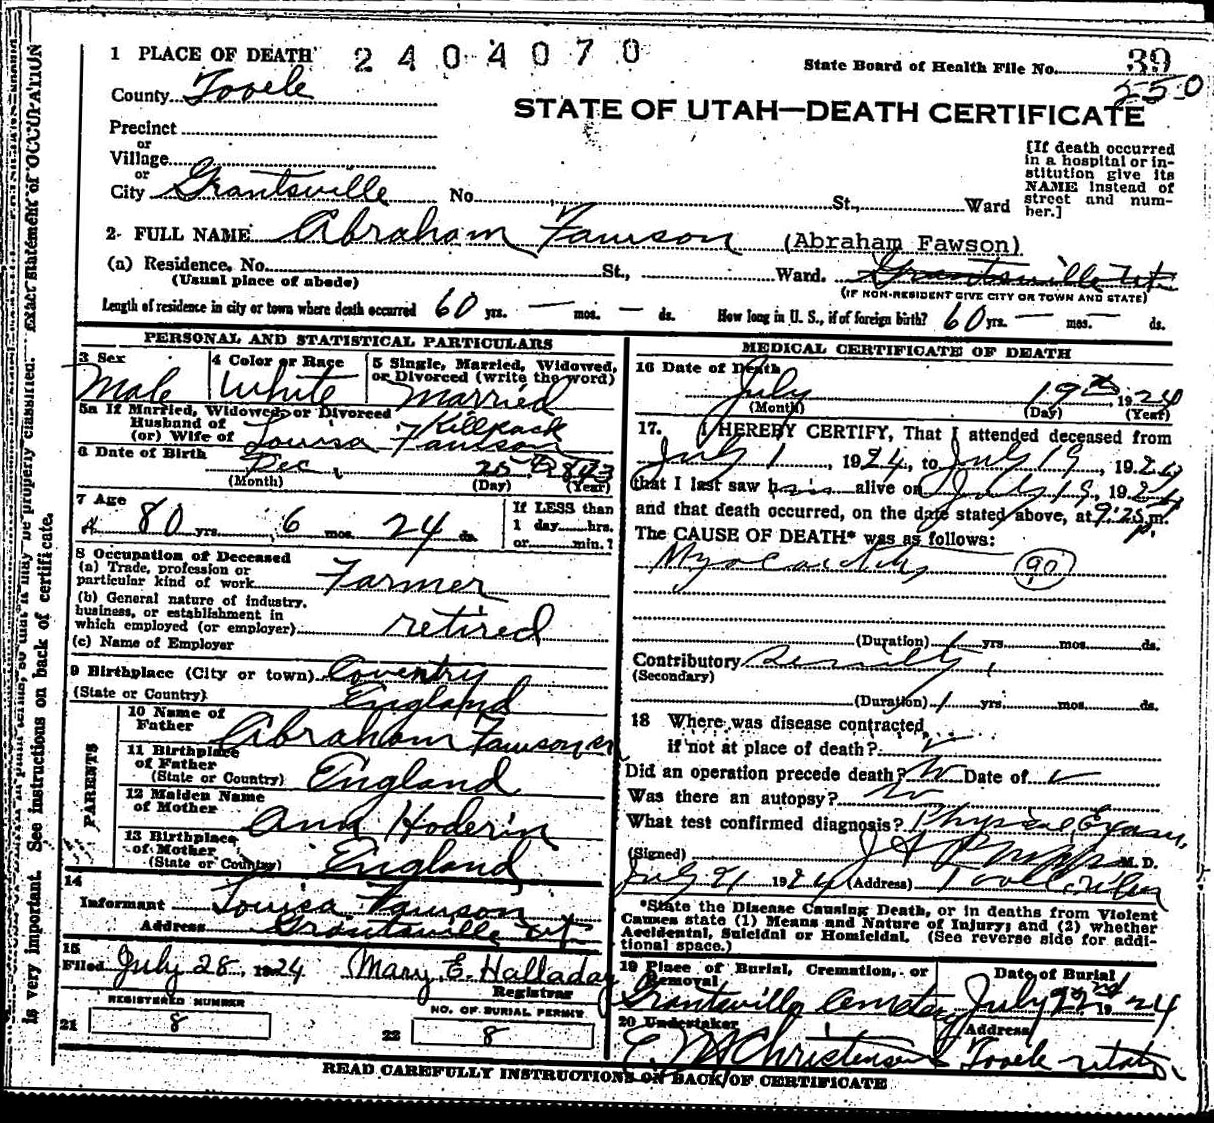 1 PLACE OF DEATH 2404070
State Board of Health File No. 39
250
County Tooele
STATE OF UTAH—DEATH CERTIFICATE
Precinct
or
Village
or
City Grantsville No. St., Ward
[If death occurred in a hospital or in-
stitution give its
NAME instead of
street and num-
ber.]
2- FULL NAME Abraham Fawson (Abraham Fawson)
(a) Residence, No. St., Ward. Grantsville Ut
(Usual place of abode) (IF NON-RESIDENT GIVE CITY OR TOWN AND STATE)
Length of residence in city or town where death occurred 60 yrs. — mos. — ds. How long in U. S., if of foreign birth? 60 yrs. — mos. — ds.
PERSONAL AND STATISTICAL PARTICULARS
3 Sex Male
4 Color or Race White
5 Single, Married, Widowed,
or Divorced (write the word)
Married
5a If Married, Widowed, or Divorced
Husband of Killpack
(or) Wife of Louisa Fawson
6 Date of Birth
Dec, 25 1843
(Month) (Day) (Year)
7 Age
80 yrs. 6 mos. 24 ds.
If LESS than
1 day hrs.
or min.?
8 Occupation of Deceased
(a) Trade, profession or
particular kind of work Farmer
(b) General nature of industry,
business, or establishment in
which employed (or employer) retired
(c) Name of Employer
9 Birthplace (City or town) Coventry
(State or Country) England
PARENTS
10 Name of
Father Abraham Fawson
11 Birthplace
of Father
(State or Country) England
12 Maiden Name
of Mother Ann Hoderin
13 Birthplace
of Mother
(State or Country) England
14
Informant Louisa Fawson
Address Grantsville Ut
15
Filed July 28, 1924 Mary E. Halladay
Registrar
REGISTERED NUMBER
21 8
NO. OF BURIAL PERMIT
22 8
MEDICAL CERTIFICATE OF DEATH
16 Date of Death
July 19th 1924
(Month) (Day) (Year)
17. I HEREBY CERTIFY, That I attended deceased from
July 1, 1924, to July 19, 1924
that I last saw him alive on July 19, 1924
and that death occurred, on the date stated above, at 9:25 p.m.
The CAUSE OF DEATH* was as follows:
Myocarditis 90
(Duration) 1 yrs. mos. ds.
Contributory Senility,
(Secondary)
(Duration) 1 yrs. mos. ds.
18 Where was disease contracted,
if not at place of death?
Did an operation precede death? No Date of
Was there an autopsy? No
What test confirmed diagnosis? Physical Exam.
(Signed) M. D.
July 21 1924 (Address) Tooele
*State the Disease Causing Death, or in deaths from Violent
Causes state (1) Means and Nature of Injury; and (2) whether
Accidental, Suicidal or Homicidal. (See reverse side for addi-
tional space.)
19 Place of Burial, Cremation, or
Removal
Grantsville Cemetery
Date of Burial
July 22nd 1924
20 Undertaker
Christensen
Address
Tooele Utah.
READ CAREFULLY INSTRUCTIONS ON BACK OF CERTIFICATE
is very important. See instructions on back of certificate.
be properly classified. Exact statement of OCCUPATION